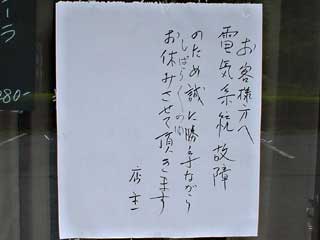 お客様方へ
電気系統故障
のため誠に勝手ながら
しばらくの間
お休みさせて頂きます
店主
ーラ
280-